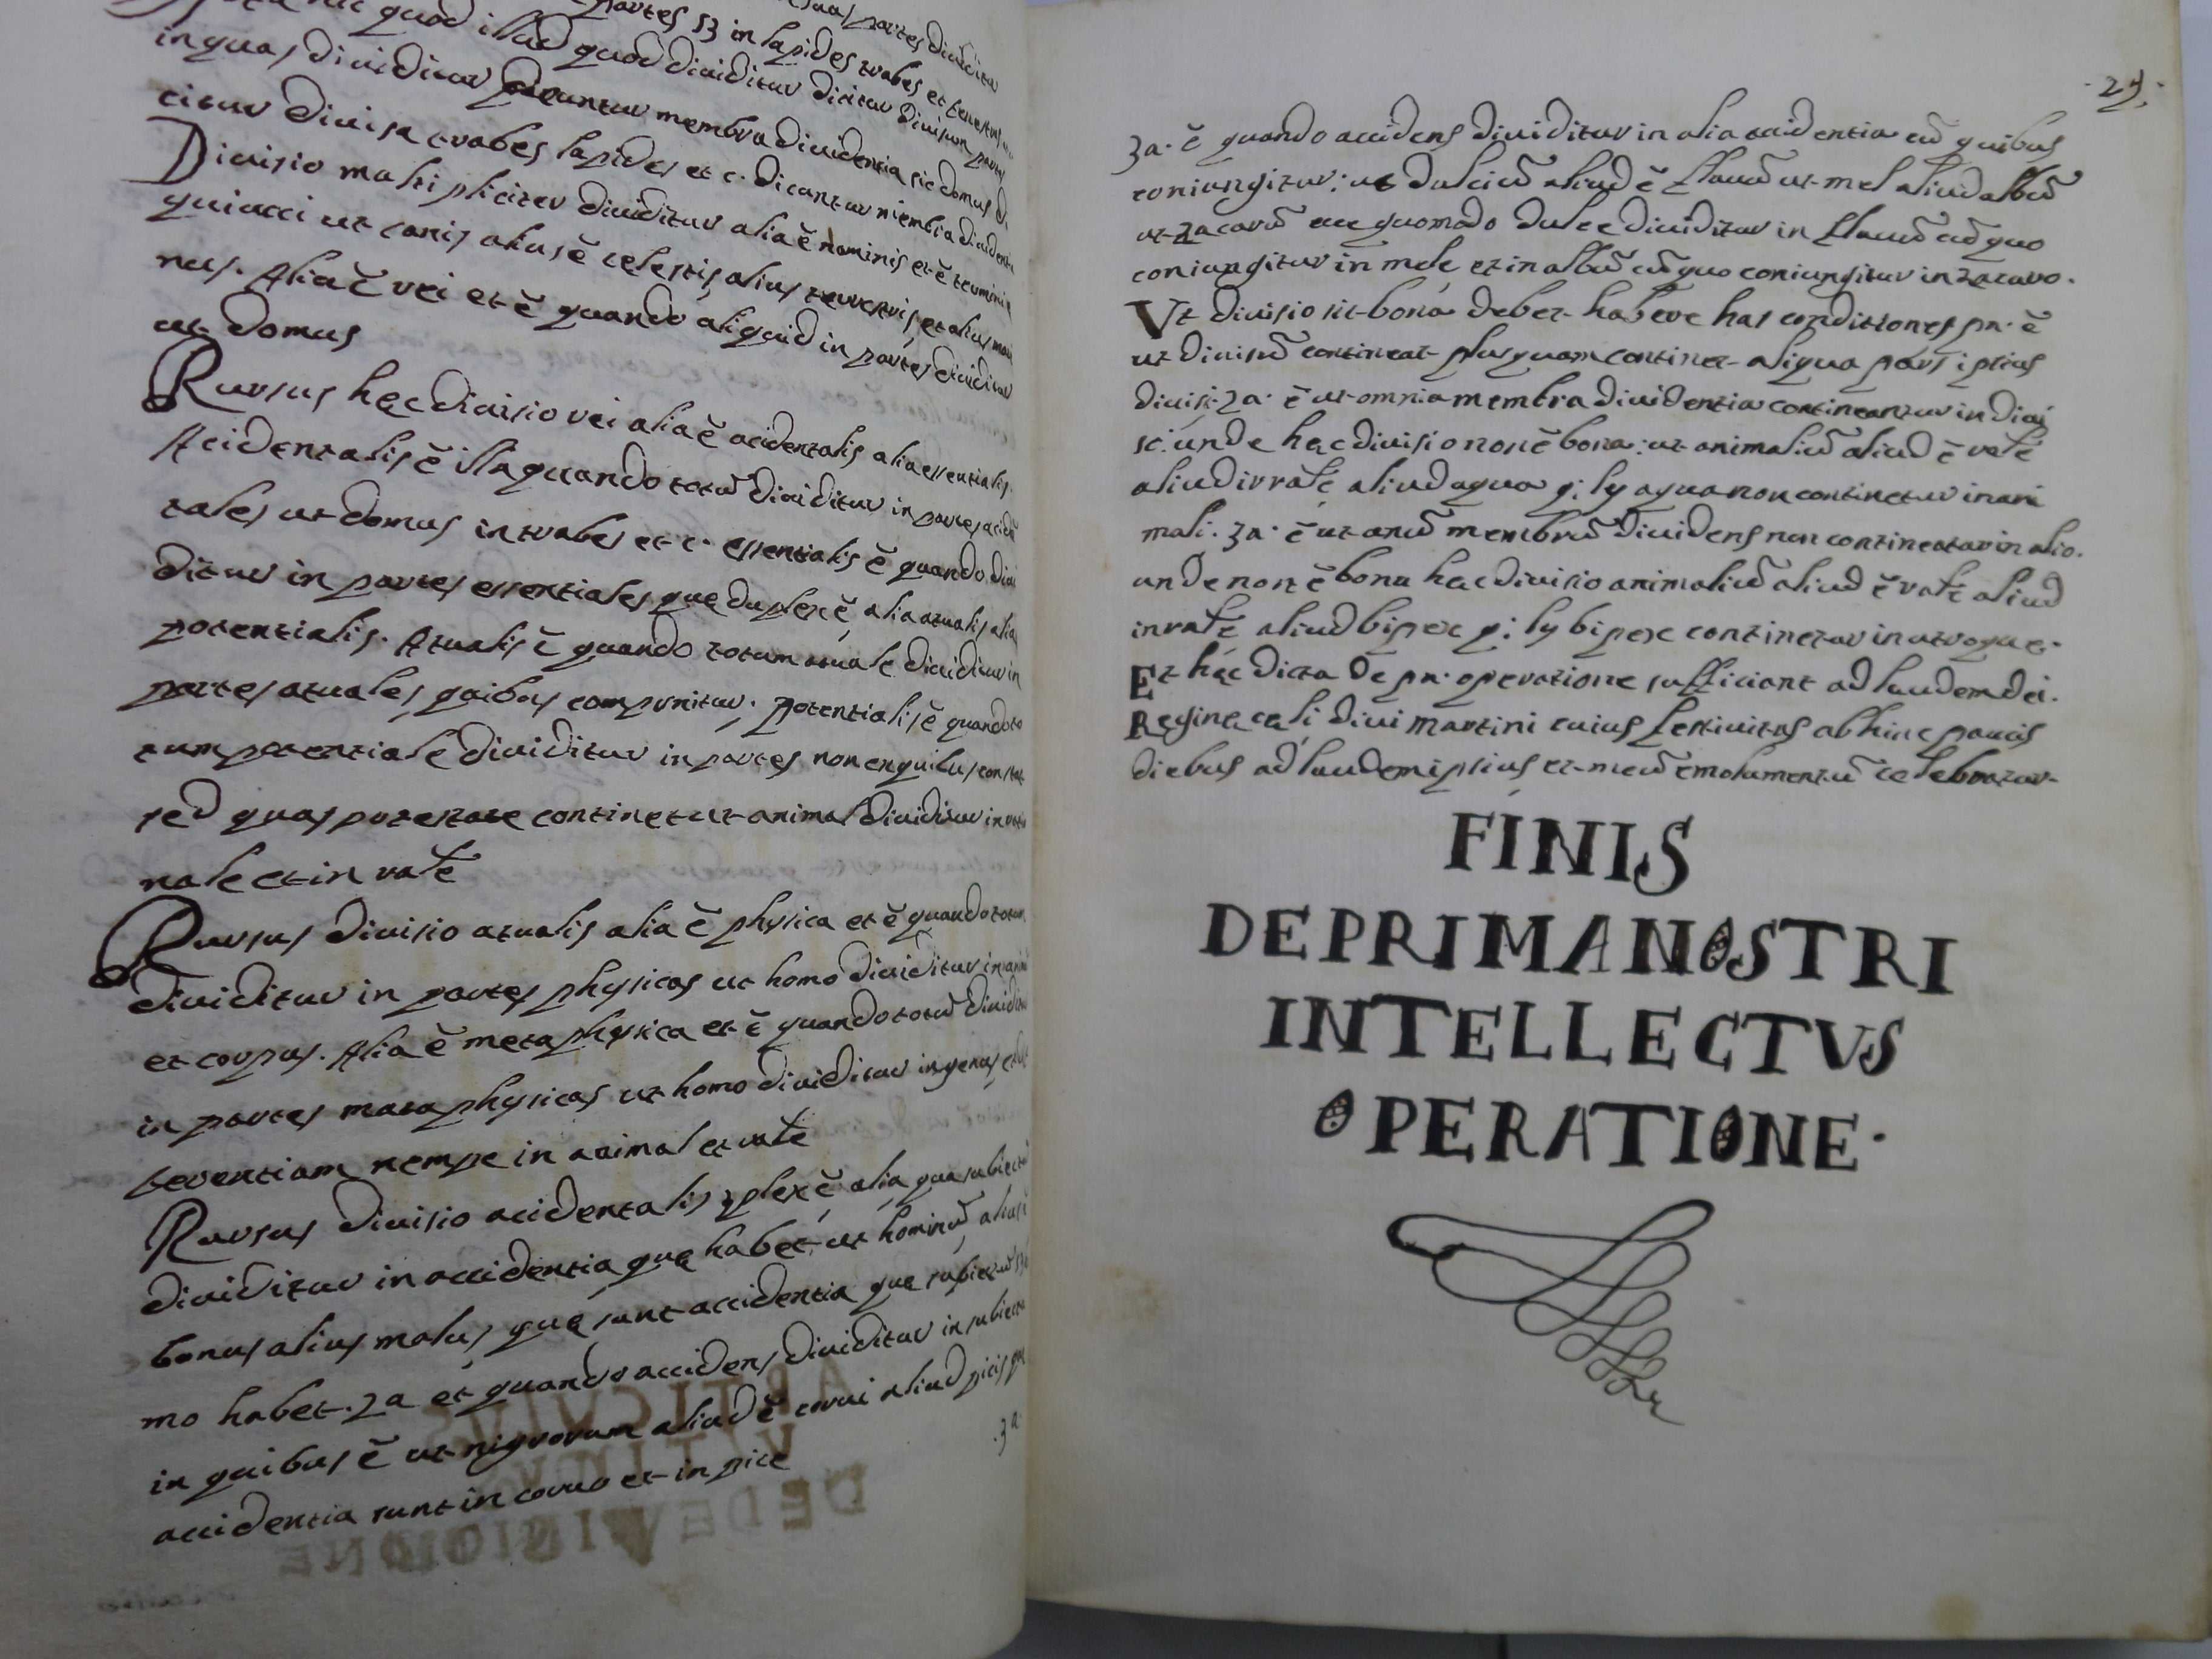 suas partes diuiditur
partes sz in lapides trabes et fenestras
nota hic quod illud quod diuiditur dicitur diuisum partes
in quas diuiditur dicuntur membra diuidentia sic domus di
citur diuisa trabes lapides et c. dicantur membra diuidentia
Diuisio multipliciter diuiditur alia ĕ nominis et ĕ termini
quiuoci ut canis alius ĕ celestis, alius terrestris, et alius mari
nus. Alia ĕ rei et ĕ quando aliquid in partes diuiditur
ut domus
Rursus hęc diuisio rei alia ĕ acidentalis alia essentialis.
Acidentalis ĕ illa quando totŭ diuiditur in partes aciden
tales ut domus in trabes et c. essentialis ĕ quando diui
ditur in partes essentiales quę duplex ĕ, alia atualis alia
potentialis. Atualis ĕ quando totum atuale diuiditur in
partes atuales, quibus componitur. Potentialis ĕ quando to
tum potentiale diuiditur in partes non ex quibus constat
sed quas potestate continet ut animal diuiditur in ratio
nale et in raīe
Rursus diuisio atualis alia ĕ physica et ĕ quando totum
diuiditur in partes physicas ut homo diuiditur in animā
et corpus. Alia ĕ metaphysica et ĕ quando totŭ diuiditur
in partes mataphysicas ut homo diuiditur in genus, et dif
ferentiam nempe in animal et raīe
Rursus diuisio acidentalis 3plex ĕ, alia qua subiectŭ
diuiditur in accidentia, quę habet, ut hominŭ, alius ĕ
bonus alius malus, quę sunt accidentia quę subiectŭ
mo habet. 2a et quando accidens diuiditur in subiecta
in quibus ĕ ut nigrorum aliud ĕ corui aliud picis quę
accidentia sunt in coruo et in pice
.3a.
.29.
3a. ĕ quando accidens diuiditur in alia accidentia cŭ quibus
coniungitur: ut dulciŭ aliud ĕ flauŭ ut mel aliud albŭ
ut zacarŭ ecce quomodo dulce diuiditur in flauŭ cŭ quo
coniungitur in mele, et in albŭ cŭ quo coniungitur in zacaro.
Vt diuisio sit bona debet habere has conditiones pa. ĕ
ut diuisŭ contineat plus quam continet aliqua pars ipsius
diuisi. 2a. ĕ ut omnia membra diuidentia contineantur in diui
si: unde hęc diuisio non ĕ bona: ut animaliŭ aliud ĕ raīe
aliud irraīe aliud aqua q; ly aqua non continetur in ani
mali. 3a. ĕ ut unŭ membrŭ diuidens non contineatur in alio.
unde non ĕ bona hęc diuisio animaliŭ aliud ĕ raīe aliud
inraīe aliud bipex q; ly bipex continetur in utroque.
Et hęc dicta de pa. operatione sufficiant ad laudem dei.
Reginę cęli diui Martini cuius festiuitas abhinc paucis
diebus ad laudem ipsius et meŭ emolumentŭ celebratur.
FINIS
DEPRIMANOSTRI
INTELLECTVS
OPERATIONE.